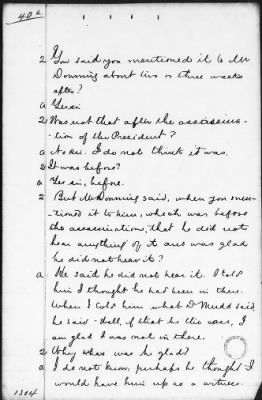 40a
Q You said you mentioned it to Mr
Downing about two or three weeks
after?
a Yes sir
Q Was not that after the assassina-
tion of the President?
a No sir. I do not think it was.
Q It was before?
a Yes sir, before.
Q But Mr Downing said, when you men-
tioned it to him, which was before
the assassination, that he did not
hear anything of it and was glad
he did not hear it?
a. He said he did not hear it. I told
him I thought he had been in there.
When I told him what Dr Mudd said
he said - Well, if that be the case, I
am glad I was not in there.
Q Why was he glad?
a I do not know, perhaps he thought I
would have him up as a witness.
1304